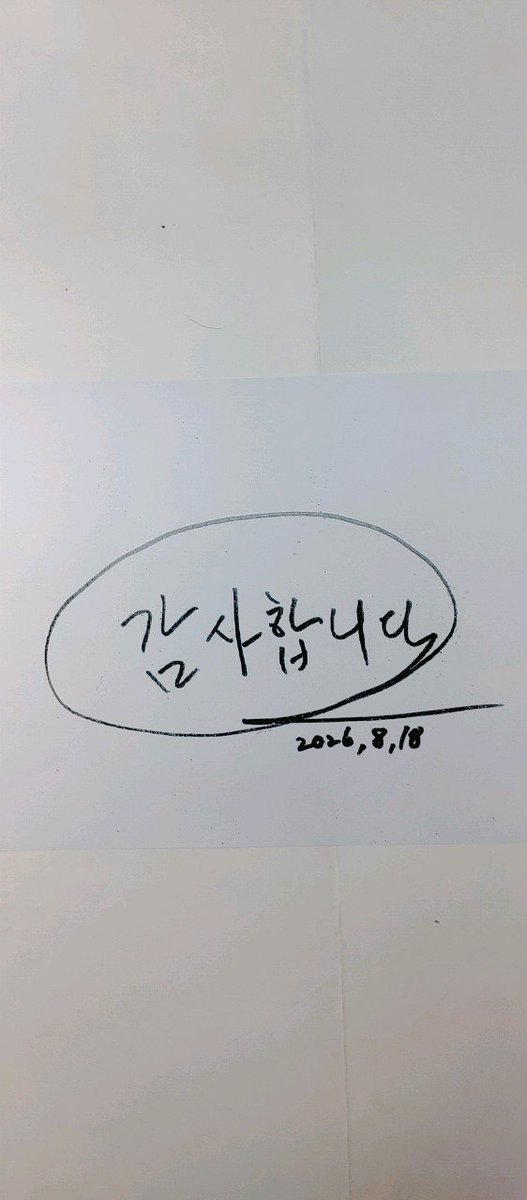 감사합니다
2026,8,18